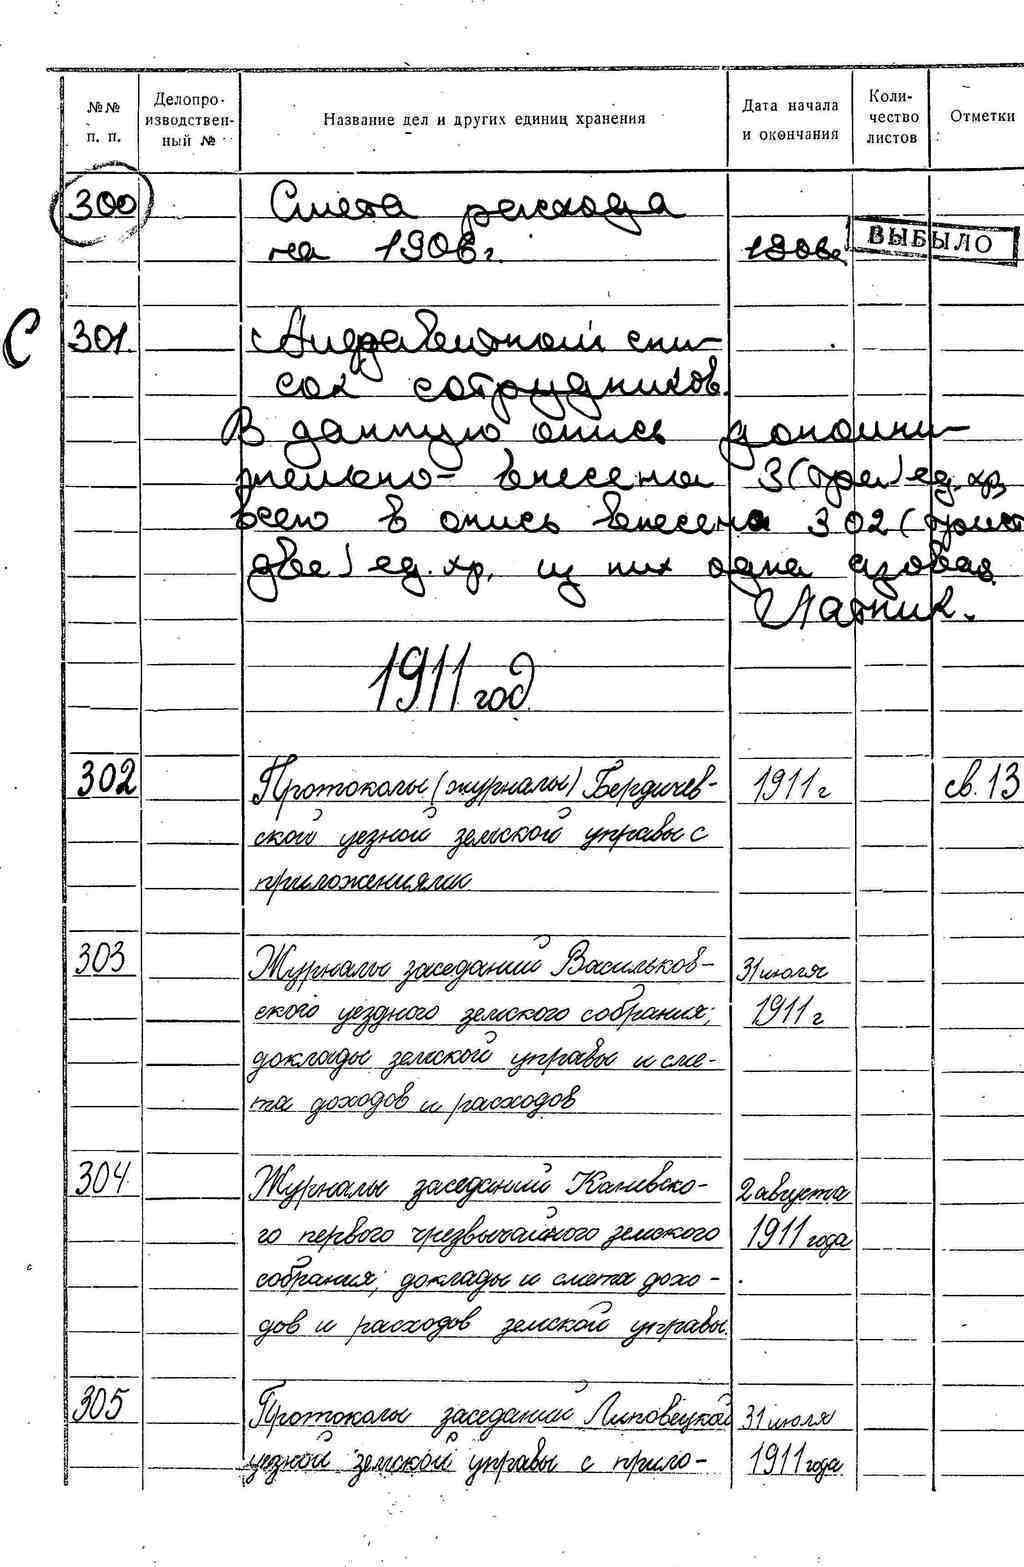 №№ п. п. Делопроизводственный № Название дел и других единиц хранения Дата начала и окончания Количество листов Отметки
300 Смета расхода
на 1906г. 1906г ВЫБЫЛО
С 301. Алфавитный спи-
сок сотрудников.
В данную опись дополни-
тельно внесена 3 (три) ед. хр,
всего в опись внесена 302 (трист
две) ед. хр, из них одна
1911 год
302 Протоколы (журналы) Бердичев- 1911 г св. 13
ской уезной земской управы с
приложениями
303 Журналы заседаний Васильков- 31 июля
ского уездного земского собрания; 1911 г
доклады земской управы и сме-
та доходов и расходов
304 Журналы заседаний Каневско- 2 августа
го первого чрезвычайного земского 1911 года
собрания; доклады и смета дохо-
дов и расходов земской управы.
305 Протоколы заседаний Липовецкой 31 июля
уезной земской управы с прило- 1911 года